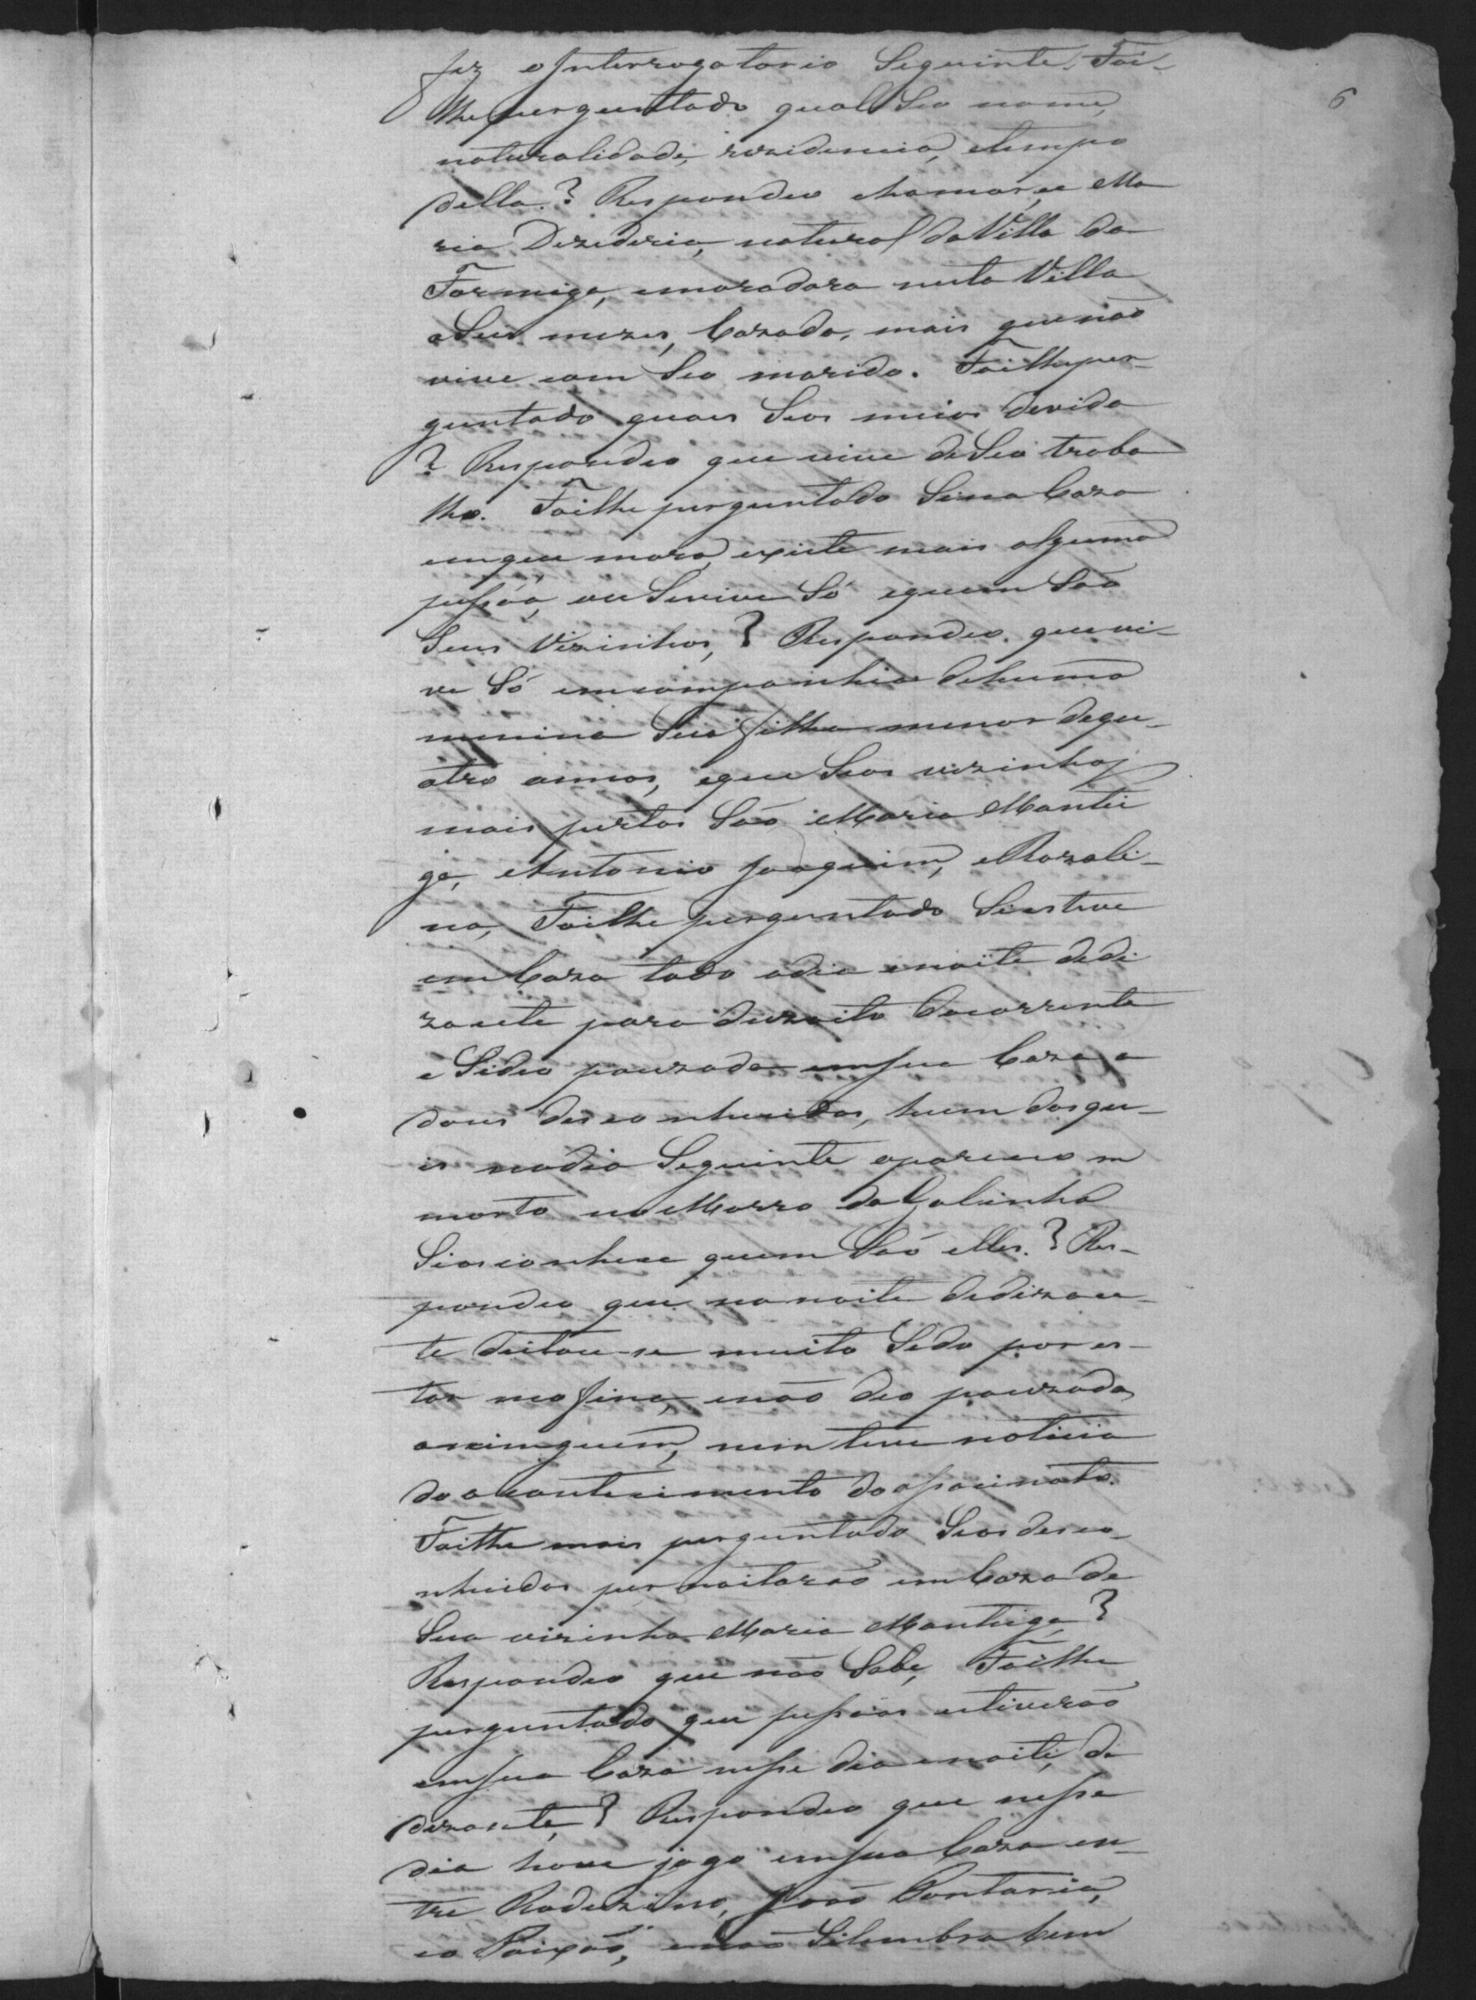 6
fez o Interrogatorio Seguinte. Foi-
lhe perguntado qual Seo nome,
naturalidade, rezidencia, etempo
della.? Respondeo chamar-se Ma
ria Dezideria, natural da Villa da
Formiga, emoradora nesta Villa
a Seis mezes, Cazada, mais quenão
vive com Seo marido. Foilheper-
guntado quaes Seos meios devida
? Respondeo que vive deSeo traba
lho. Foilhe perguntado Sena Caza
emque mora, existe mais alguma
pessôa, ou Sevive Só equem São
Seus Vizinhos,? Respondeo. quevi-
ve Só emcompanhia dehuma
menina Sua filha menor dequ-
atro annos, eque Seos vizinhos
mais pertos São Maria Mantei
ga, Antonio Joaquim, eRozali-
na, Foilhe perguntado Siesteve
emCaza todo odia enoite dedi
zasete para dezoito Docorrente
e Sideo pouzada emsua Caza a
dous desconhecidos, hum dosqu-
es nodia Seguinte apareceo m
morto noMorro daGalinha
Siosconhece quem São elles.? Res-
pondeo que nanoite dedizase-
te deitou-se muito Sedo pores-
tar mofina, enão deo pouzada
aninguem, nem teve noticia
do acontecimento doassacinato.
Foilhe mais perguntado Seosdesco-
nhecidos pernoitarão emCaza de
Sua vizinha Maria Manteiga,?
Respondeo que não Sabe, Foilhe
perguntado que pessôas estiverão
emsua Caza nesse dia enoite, de
dezasete,? Respondeo que nesse
dia houve jogo emsua Caza en-
tre Rodezino, João Pontaria,
eo Paixão, enão Silembra bem